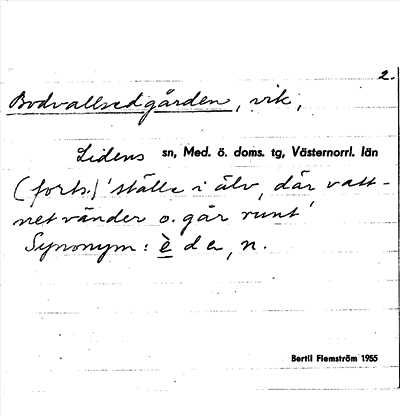 2.
Bodvallsedgården, vik,
Lidens sn, Med. ö. doms. tg, Västernorrl. län
(forts.) 'ställe i älv, där vatt-
net vänder o. går runt'
Synonym: èda, n.
Bertil Flemström 1955